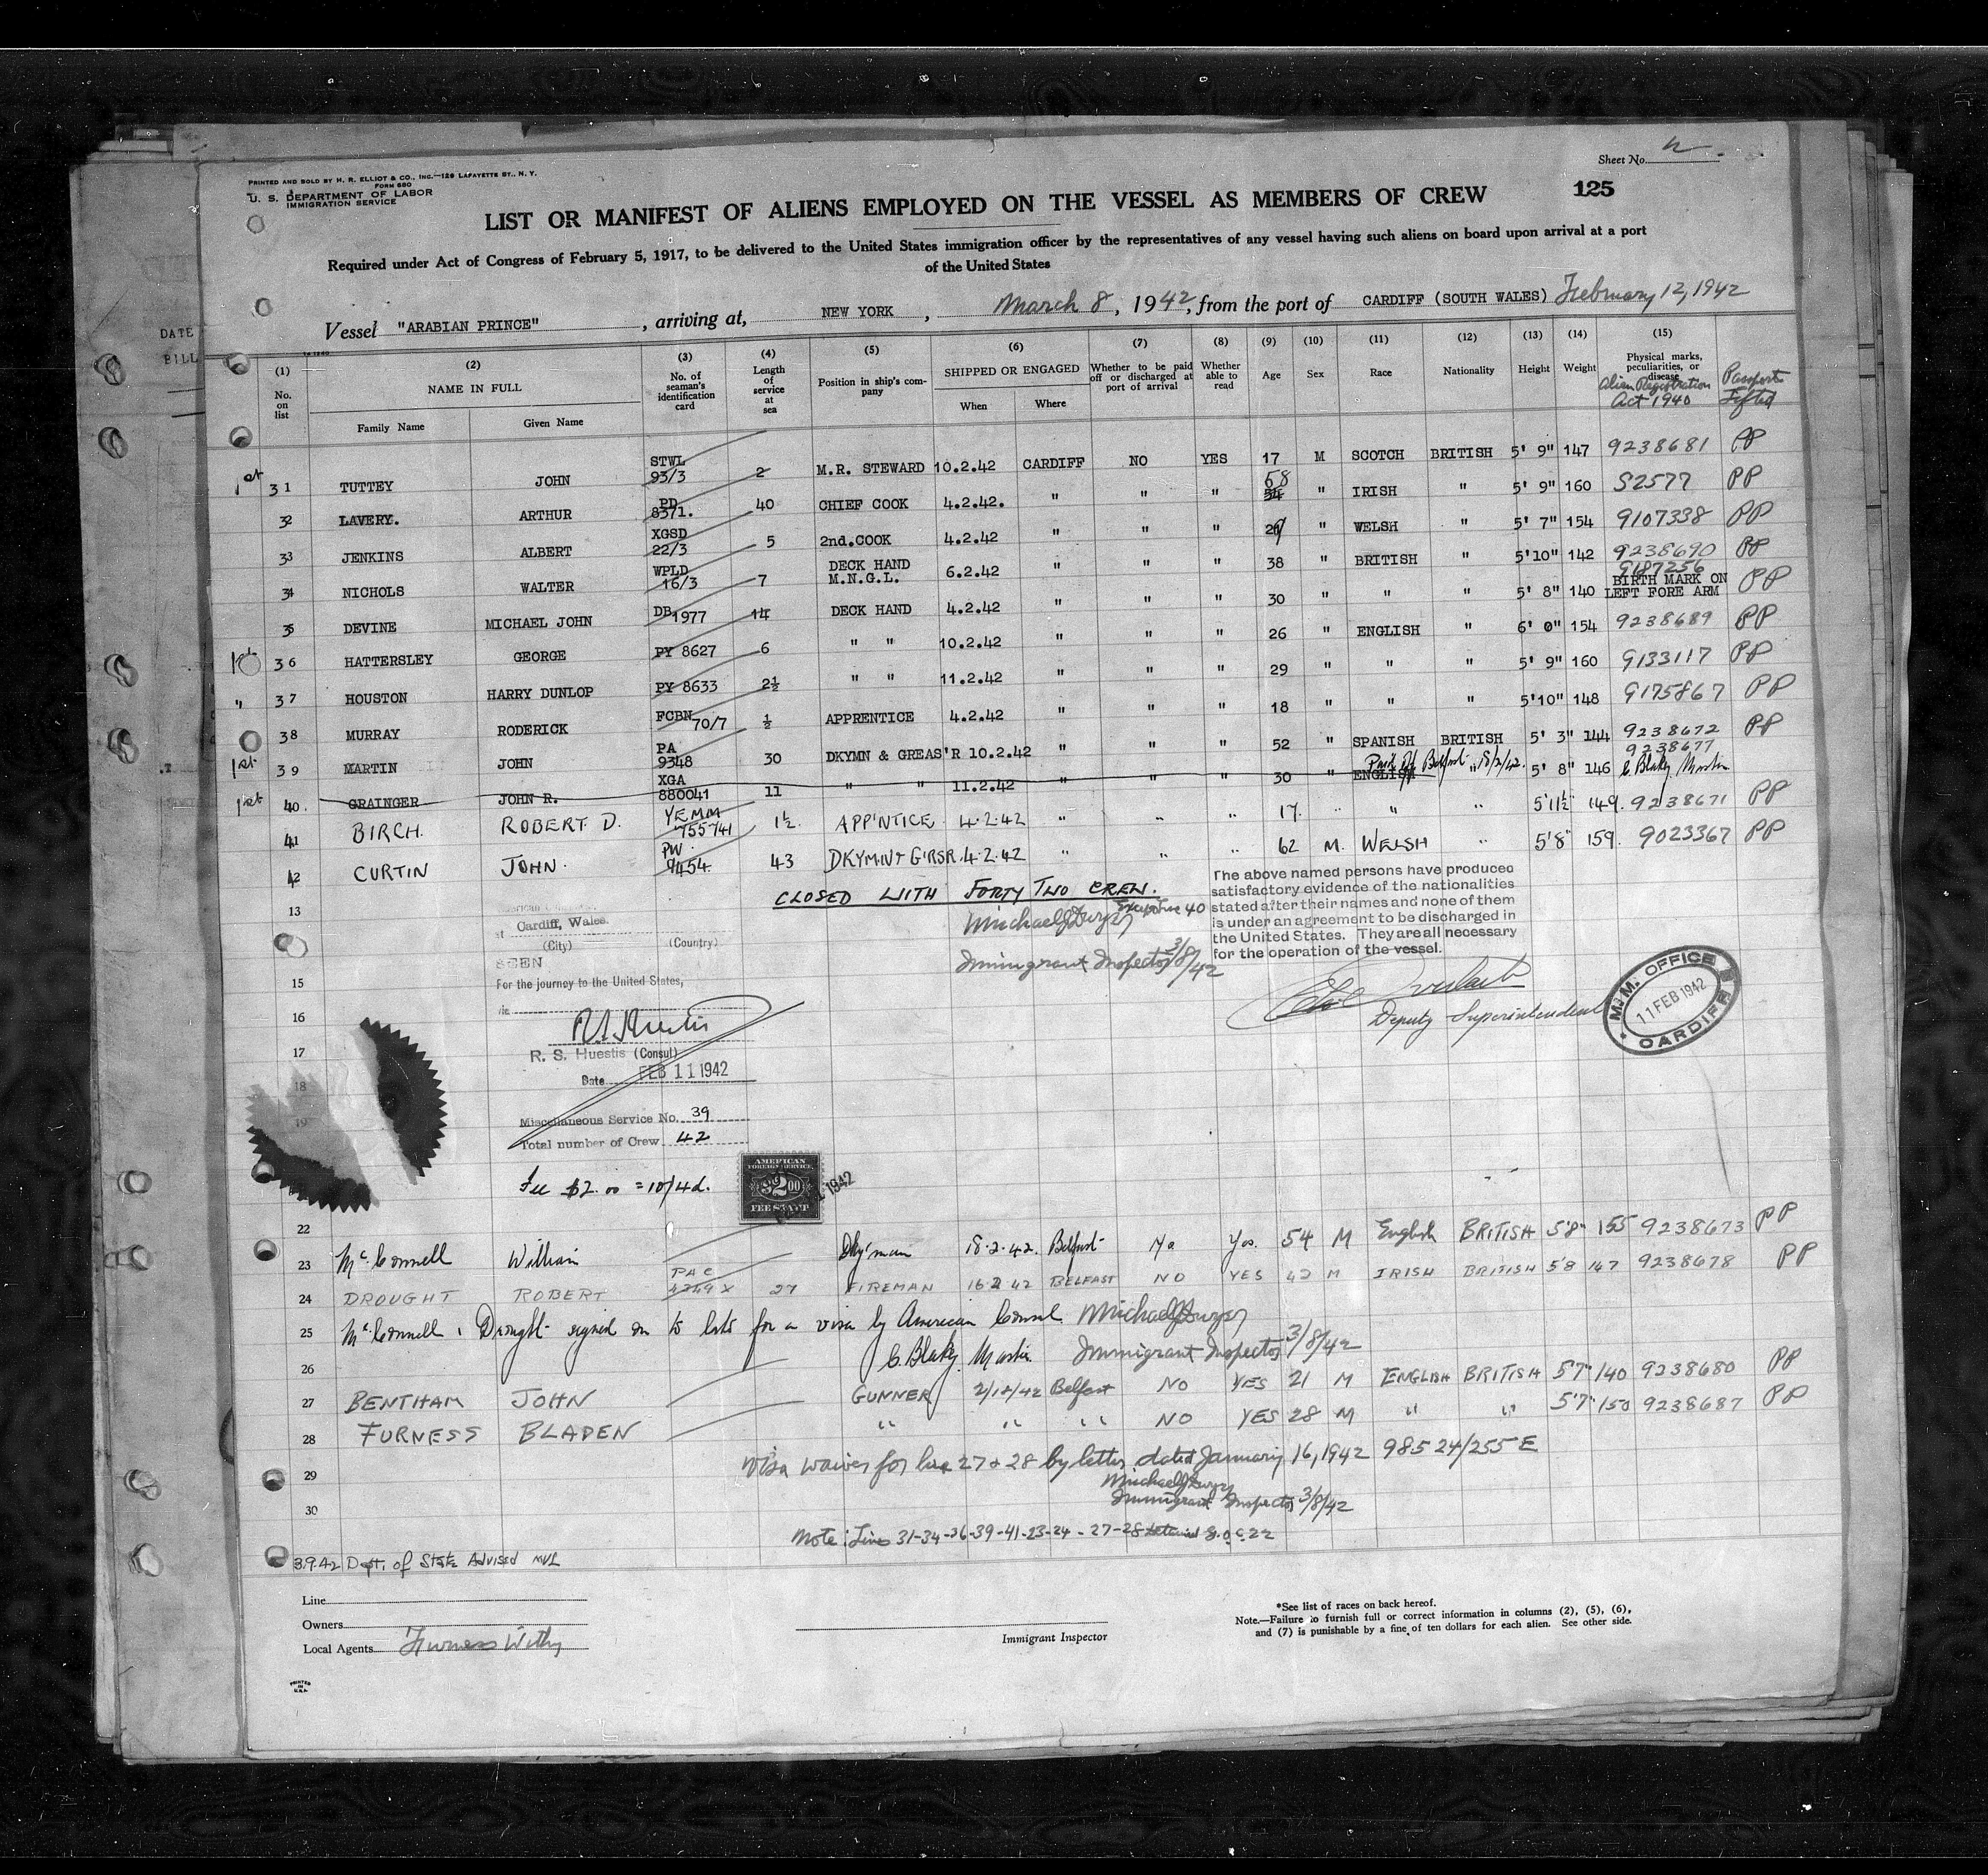 Sheet No.
PRINTED AND SOLD BY H. R. ELLIOT & CO., INC.—129 LAFAYETTE ST., N. Y.
FORM 680
U. S. DEPARTMENT OF LABOR
IMMIGRATION SERVICE
125
LIST OR MANIFEST OF ALIENS EMPLOYED ON THE VESSEL AS MEMBERS OF CREW
Required under Act of Congress of February 5, 1917, to be delivered to the United States immigration officer by the representatives of any vessel having such aliens on board upon arrival at a port
of the United States
DATE
BILL
Vessel "ARABIAN PRINCE", arriving at, NEW YORK, March 8, 1942, from the port of CARDIFF (SOUTH WALES) February 12, 1942
(1) (2) (3) (4) (5) (6) (7) (8) (9) (10) (11) (12) (13) (14) (15)
No. on list NAME IN FULL Family Name Given Name No. of seaman's identification card Length of service at sea Position in ship's company SHIPPED OR ENGAGED When Where Whether to be paid off or discharged at port of arrival Whether able to read Age Sex Race Nationality Height Weight Physical marks, peculiarities, or disease Alien Registration Act 1940 Passport Lifted
1st 31 TUTTEY JOHN STWL 93/3 2 M.R. STEWARD 10.2.42 CARDIFF NO YES 17 M SCOTCH BRITISH 5' 9" 147 9238681 PP
32 LAVERY. ARTHUR PD 8371. 40 CHIEF COOK 4.2.42. " " " 54 58 " IRISH " 5' 9" 160 S2577 PP
33 JENKINS ALBERT XGSD 22/3 5 2nd.COOK 4.2.42 " " " 29 " WELSH " 5' 7" 154 9107338 PP
34 NICHOLS WALTER WPLD 16/3 7 DECK HAND M.N.G.L. 6.2.42 " " " 38 " BRITISH " 5'10" 142 9238690 PP
35 DEVINE MICHAEL JOHN DB 1977 14 DECK HAND 4.2.42 " " " 30 " " " 5' 8" 140 9187256 BIRTH MARK ON LEFT FORE ARM PP
1st 36 HATTERSLEY GEORGE PY 8627 6 " " 10.2.42 " " " 26 " ENGLISH " 6' 0" 154 9238689 PP
" 37 HOUSTON HARRY DUNLOP PY 8633 2½ " " 11.2.42 " " " 29 " " " 5' 9" 160 9133117 PP
38 MURRAY RODERICK FCBN 70/7 ½ APPRENTICE 4.2.42 " " " 18 " " " 5'10" 148 9175867 PP
1st 39 MARTIN JOHN PA 9348 30 DKYMN & GREAS'R 10.2.42 " " " 52 " SPANISH BRITISH 5' 3" 144 9238672 PP
1st 40. GRAINGER JOHN R. XGA 880041 11 " " 11.2.42 " " " 30 " ENGLISH Paid Off Belfast 18/2/42. " 5' 8" 146 9238677 C. Blaky Master
41 BIRCH. ROBERT D. YEMM 755741 1½ APP'NTICE 4.2.42 " " " 17. " " " 5'11½" 149. 9238671 PP
42 CURTIN JOHN. PW. 9454. 43 DKYMN & G'RSR. 4.2.42 " " " 62 M. WELSH " 5'8" 159. 9023367 PP
CLOSED WITH FORTY TWO CREW.
Except Line 40
Immigrant Inspector 3/8/42
The above named persons have produced
satisfactory evidence of the nationalities
stated after their names and none of them
is under an agreement to be discharged in
the United States. They are all necessary
for the operation of the vessel.
Deputy Superintendent
M. M. OFFICE
11 FEB 1942
CARDIFF
13
at Cardiff, Wales.
(City) (Country)
SEEN
15
For the journey to the United States,
16
17
R. S. Huestis (Consul)
Date FEB 11 1942
18
19
Miscellaneous Service No. 39
Total number of Crew 42
Fee $2.00 = 10/4d.
AMERICAN
FOREIGN SERVICE
$2.00
FEE STAMP
1942
22
23 McConnell William Dky'man 18.2.42. Belfast No Yes. 54 M English BRITISH 5'8" 155 9238673 PP
24 DROUGHT ROBERT PAC 4249 X 27 FIREMAN 16.2.42 BELFAST NO YES 42 M IRISH BRITISH 5'8 167 9238678 PP
25 McConnell & Drought signed on to late for a visa by American Consul
26 C. Blaky. Master. Immigrant Inspector 3/8/42
27 BENTHAM JOHN GUNNER 2/12/42 Belfast NO YES 21 M ENGLISH BRITISH 5'7" 140 9238680 PP
28 FURNESS BLADEN " " " NO YES 28 M " " 5'7" 150 9238687 PP
29 Visa waiver for line 27 & 28 by letter dated January 16, 1942 98524/255E
30 Immigrant Inspector 3/8/42
Note: Lines 31-34-36-39-41-23-24-27-28
3.9.42 Dept. of State Advised MVL
Line
Owners
Local Agents Furness Withy
Immigrant Inspector
*See list of races on back hereof.
Note.—Failure to furnish full or correct information in columns (2), (5), (6),
and (7) is punishable by a fine of ten dollars for each alien. See other side.
PRINTED
IN
U.S.A.